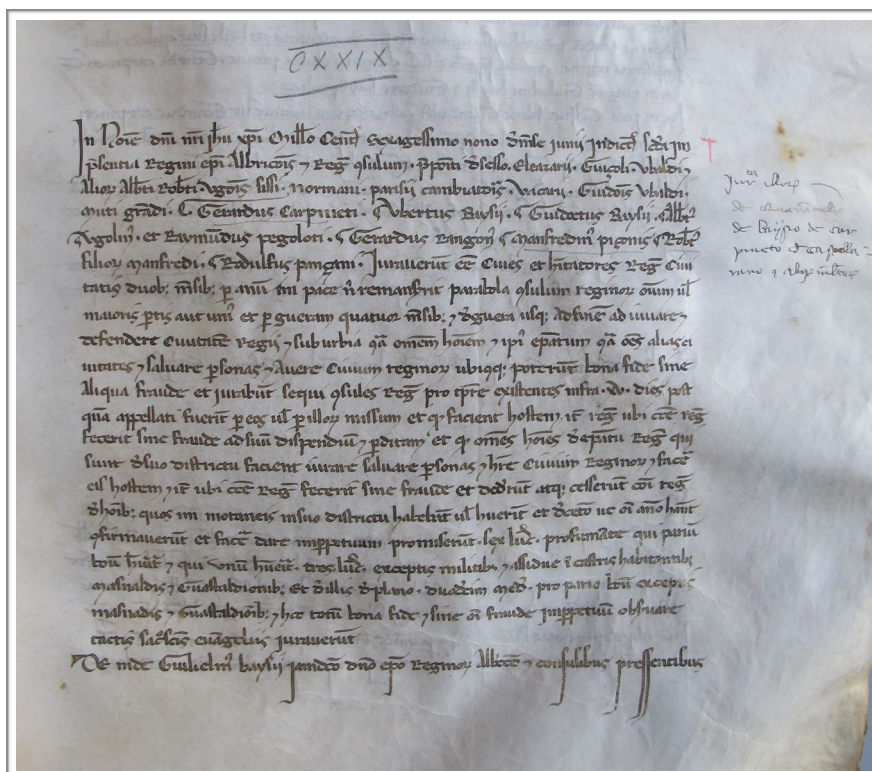 CXXIX
In Noīe dnī nrī jhu xpi Millo Cent̄ sexagessimo nono d̄ mse junii Indict̄ scda im
p̄sentia Regini ep̄i Albricōis ⁊ Reḡ ꝯsulum. p̄poīti d̄sesso. Eleazarii. Guiçoli. Vbaldi ⁊
Alior Alb̄ti Rob̄ti Vgōis sissi. Normani. parisii cambiatōis. Vicarii. Guidōis Vbaldi.
muti grādi. S. Gerardus Carpineti. S Vbertus Baysii. S Guidectus Baysii. S Alb̄t᾽
Vgolin᾽. et Raymūdus pegoloti. S Gerardus Rangon᾽ S Manfredin᾽ piçonis S Rob̄t᾽
filior Manfredi. S Rodulfus pançani. Juraverūt eē Cives et hītatores Reḡ Civi
tatis duob; msib; p anū im pace n̄ remanserit parabola ꝯsulum reginor oīum ul̄
maioris ptis aut uni᾽ et p gueram quatuor msib; ⁊ d̄guera usq; ad finē ad iuvare ⁊
defendere Civitatē Regii ⁊ suburbia q̄ā omēm hoīem ⁊ ip̄i ep̄atum q̄ā oēs alias ci
vitates ⁊ salvare psonas ⁊ Avere Civium reginor ubiq̄q; poterūt bona fide sine
Aliqua fraude et iurabūt sequi ꝯsules Reḡ pro tp̄re existentes infra .xv. dies post
quā appellati fuerīt p eos ul̄ p illor missum et qd̄ facient hostem iť reḡ ubi cōe reḡ
fecerit sine fraude ad suū dispendiū ⁊ pditam et qd̄ omēs hoīes d̄ ep̄atu Reḡ qui
sunt d̄ suo districtu facient iurare salvare psonas ⁊ hr̄e Civium Reginor ⁊ facē
eis hostem ⁊ iť ubi cōe Reḡ fecerit sine fraude et dedr̄ūt atq; cesserūt cōi reḡ
d̄ hoīb; quos im motaneis in suo districtu habebūt ul̄ huerīt et d̄ceto uc oī ano hānt
ꝯfirmaverūt et facē dare imppetuum promiserūt. sex lib̄r. profitmāte qui pariū
boū hūīt ⁊ qui unū hueīt. tres lib̄r. exceptis militib; ⁊ assidue ī castris habitantib;
masnaldis ⁊ Guastaldionib; et d̄illis d̄ plano. duodecim meď. pro pario boū exceptis
masnadis ⁊ Guastaldiōib; ⁊ hec totū bona fide ⁊ sine oī fraude imppetuū obs̄vare
tactis sac̄scīs evāgeliis juraverūt
De mde Guilielm᾽ baysii jamdco dn̄o ep̄o Reginor Albicōe ⁊ consulibus pressentibus
Jur
de
de baysio de car
pineto